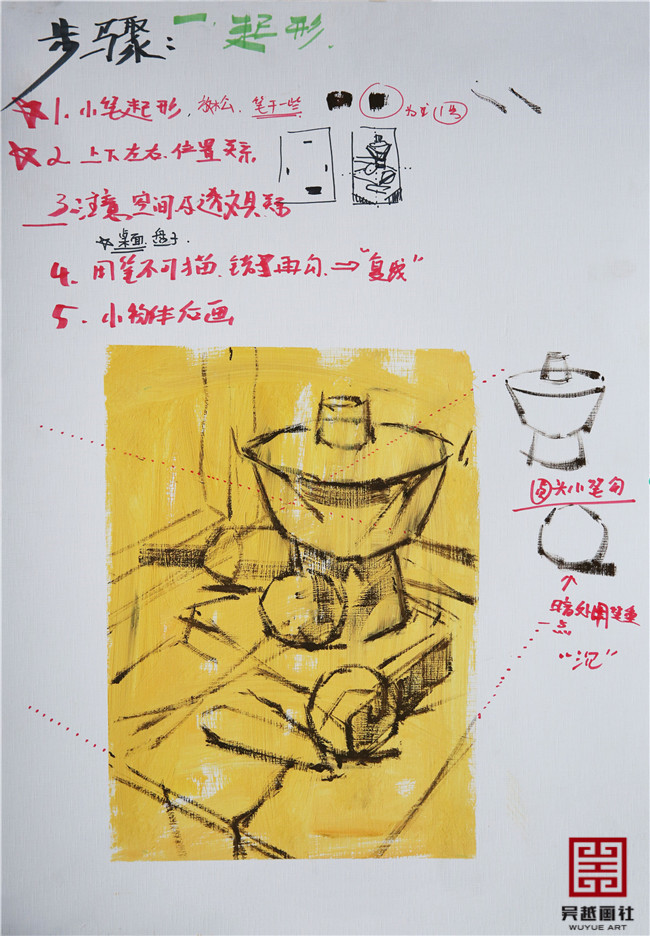 步骤：一.起形.
1.小笔起形，放松.笔干一些 为虫 1当
2.上下左右.位置关系
3.注意空间及透视关系
☆桌面.盘子.
4.用笔不可描.错了再勾.⇒"复线"
5.小物体后画
圆头小笔勾
暗处用笔重
一点
"沉"
吴越画社
WUYUE ART